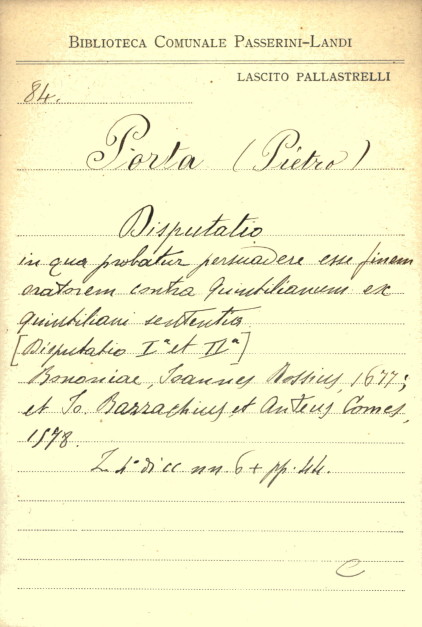 BIBLIOTECA COMUNALE PASSERINI-LANDI
LASCITO PALLASTRELLI
84.
Porta (Pietro)
Disputatio
in qua probatur persuadere esse finem
oratorem contra Quintilianum ex
Quintiliani sententia
[Disputatio Iª et IIª]
Bononiae, Joannes Rossius, 1677;
et Jo. Barrachius et Anteus Comes,
1578.
4° di cc nn. 6 + pp. 44.
C